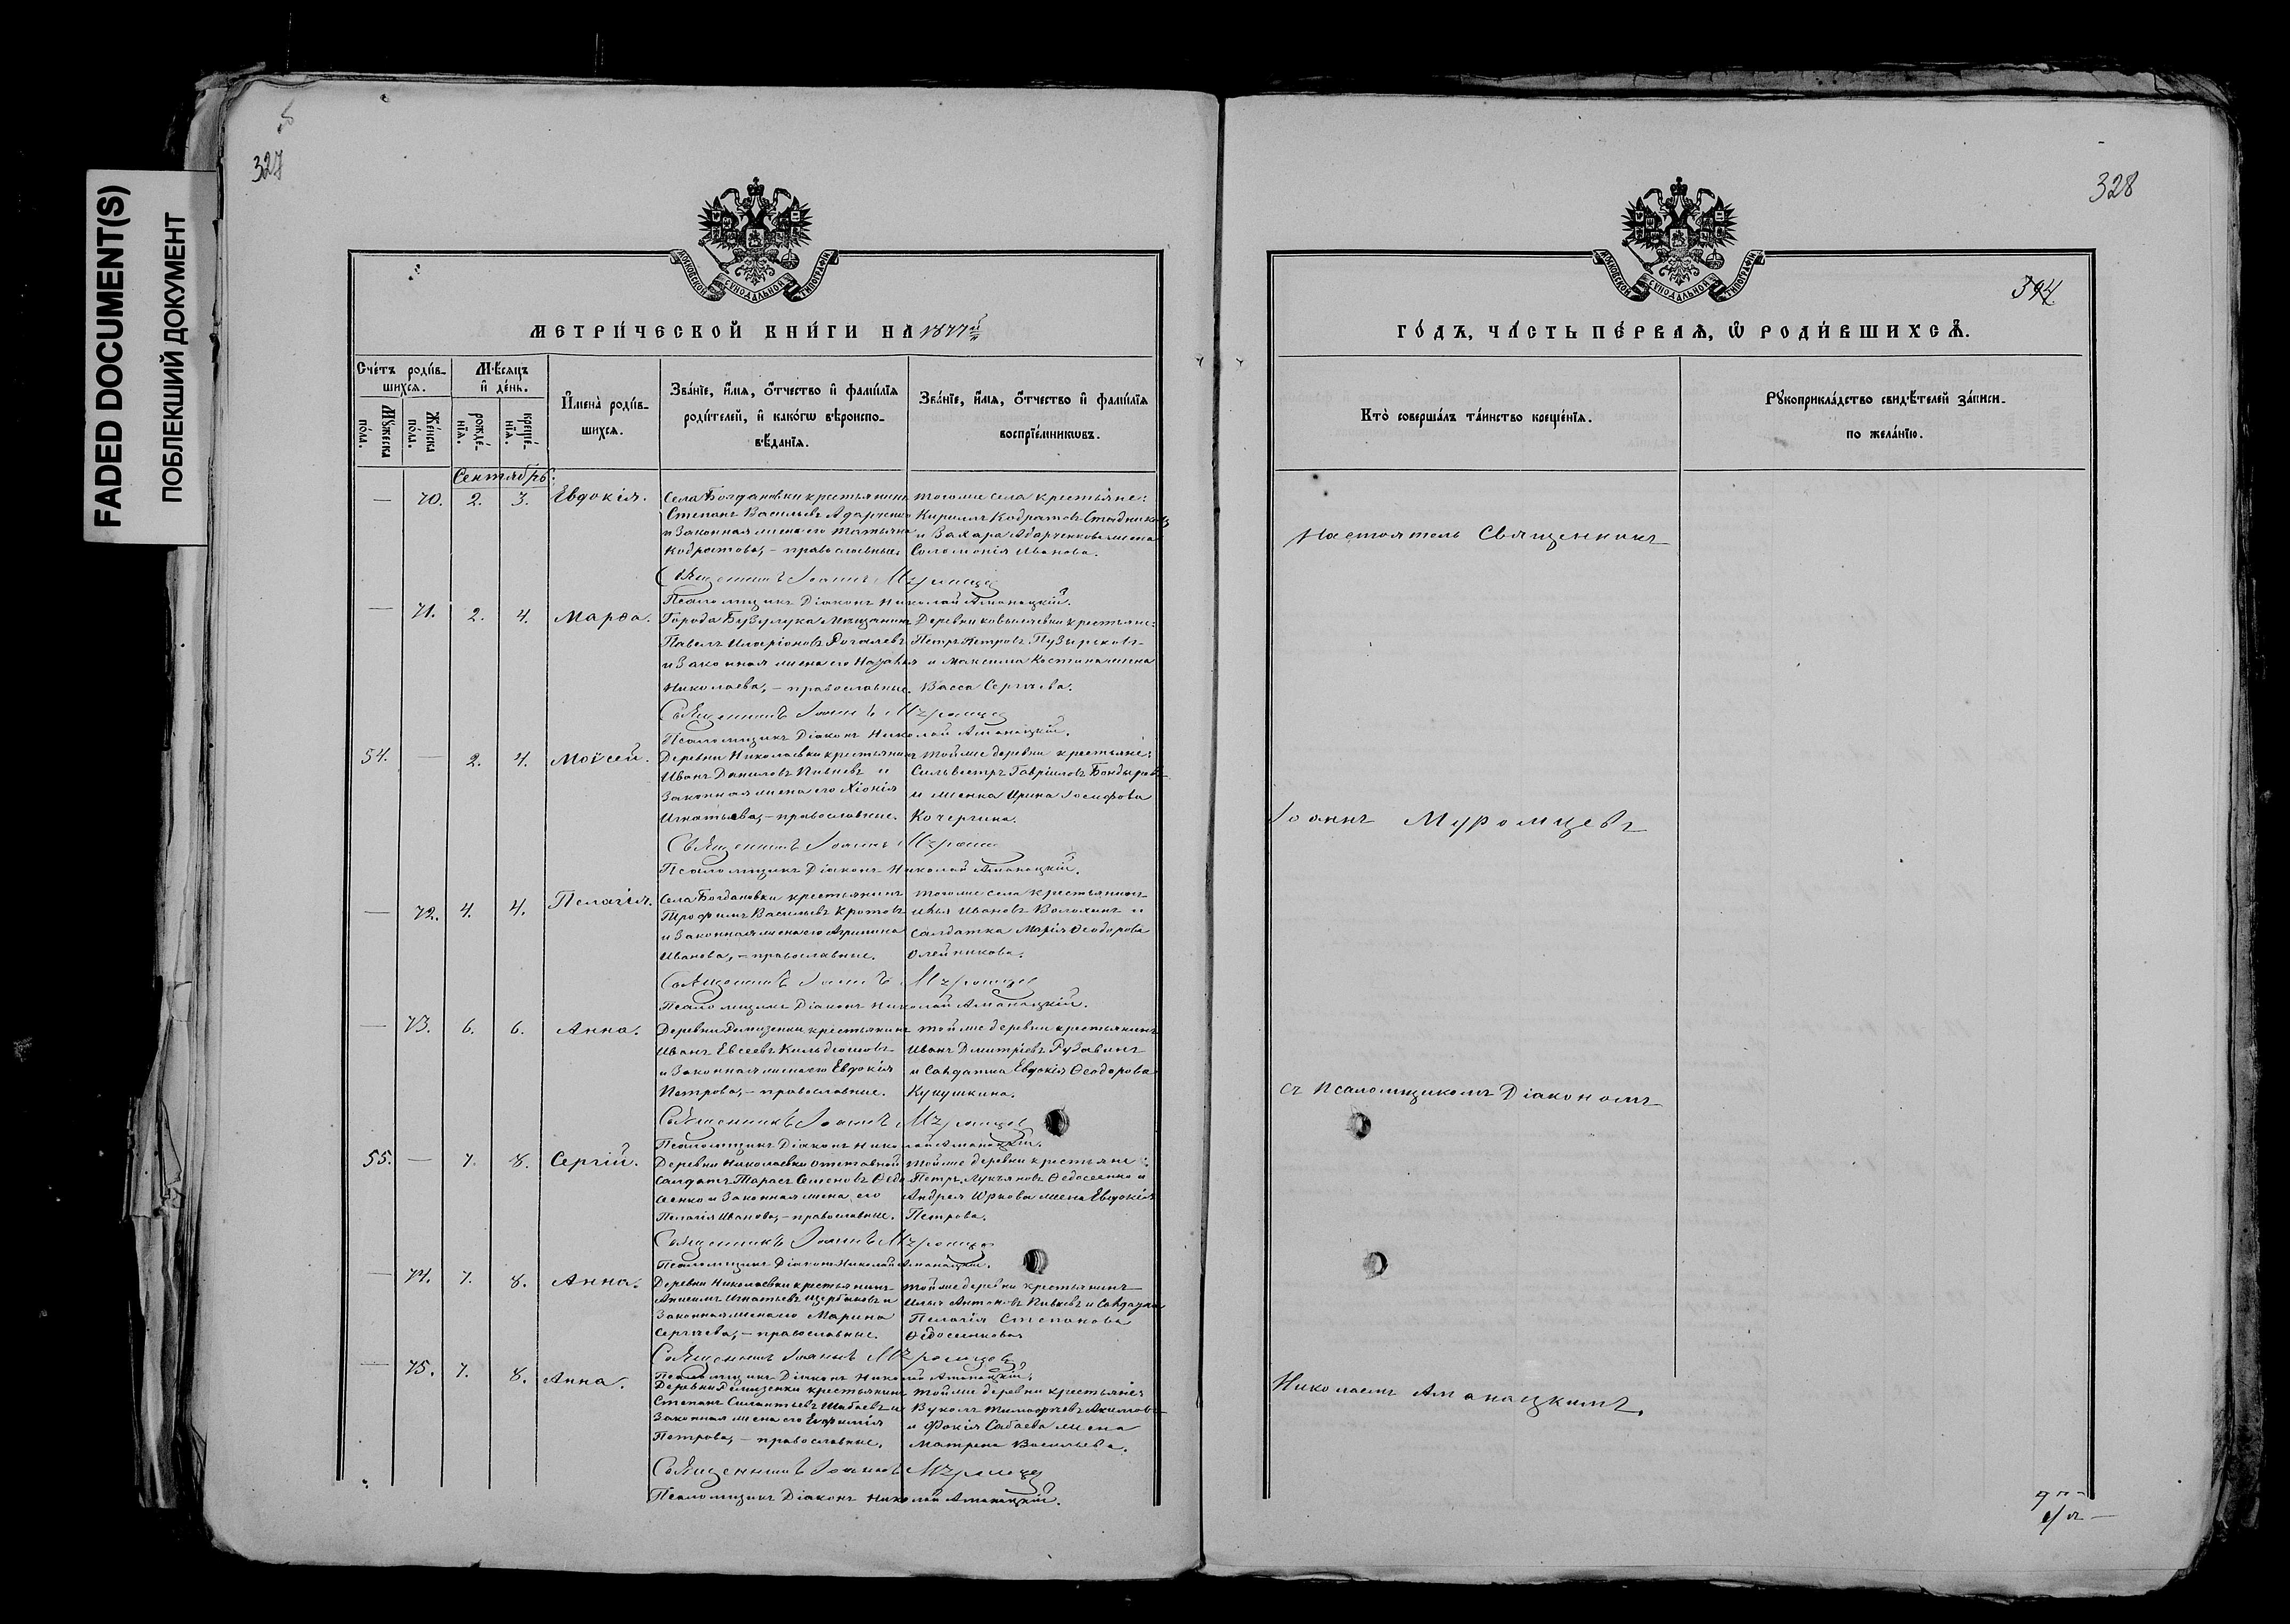 FADED DOCUMENT(S)
ПОБЛЕКШИЙ ДОКУМЕНТ
327
МОСКОВСКОЙ СУНОДАЛЬНОЙ ТИПОГРАФІИ
МЕТРИ́ЧЕСКОЙ КНИ́ГИ НА 1877й
Сче́тъ роди́в-
шихся.
Му́жеска по́ла.
Же́нска по́ла.
Мѣ́сяцъ и де́нь.
рожде́нїя.
креще́нїя.
И҆мена̀ роди́в-
шихся.
Зва́нїе, и҆́мя, ѻ҆́тчество и҆ фами́лїя
роди́телей, и҆ како́гѡ вѣроиспо-
вѣ́данїя.
Зва́нїе, и҆́мя, ѻ҆́тчество и҆ фами́лїя
воспрїе́мникѡвъ.
Сентябрь.
— 70. 2. 3. Евдокія.
Села Богдановки крестьянинъ
Степанъ Васильевъ Адарченко
и законная жена его Татьяна
Кодратова, – православные.
Того же села крестьяне:
Кирилъ Кодратовъ Стадниковъ
и Захара Адарченкова жена
Соломонія Иванова.
Священникъ Іоаннъ Муромцев
Псаломщикъ Діаконъ Николай Аманацкій.
— 71. 2. 4. Марѳа.
Города Бузулука Мещанинъ
Павелъ Иларіоновъ Рогалевъ
и законная жена его
Николаева, – православные.
Деревни крестьяне:
Петръ Петровъ Пузырьковъ
и Максима Костина жена
Васса Сергеева.
Священникъ Іоаннъ Муромцев
Псаломщикъ Діаконъ Николай Аманацкій.
54. — 2. 4. Моѵсей.
Деревни Николаевки крестьянинъ
Иванъ Даниловъ Пивневъ и
законная жена его Хіонія
Игнатьева, – православные.
Той же деревни крестьяне:
Сильвестръ Гавріиловъ Бондырев
и женка Ирина Іосифова
Кочергина.
Священникъ Іоаннъ Муромц
Псаломщикъ Діаконъ Николай Аманацкій.
— 72. 4. 4. Пелагія.
Села Богдановки крестьянинъ
Трофимъ Васильевъ Кротовъ
и законная жена его Агрипина
Иванова, – православные.
Того же села крестьянинъ
Илья Ивановъ Волохинъ и
салдатка Марія Ѳеодорова
Олейникова.
Священникъ Іоаннъ Муромцев
Псаломщикъ Діаконъ Николай Аманацкій.
— 73. 6. 6. Анна.
Деревни Ремизенки крестьянинъ
Иванъ Евсеевъ Кильдюшовъ
и законная жена его Евдокія
Петрова, – православные.
Той же деревни крестьянинъ
Иванъ Дмитріевъ Рузавинъ
и салдатка Евдокія Ѳеодорова
Кукушкина.
Священникъ Іоаннъ Муромцев
Псаломщикъ Діаконъ Николай Аманацкій.
55. — 7. 8. Сергій.
Деревни Николаевки отставной
салдатъ Тарасъ Семеновъ Ѳедо-
сеенко и законная жена его
Пелагія Иванова, – православные.
Той же деревни крестьяне:
Петръ Лукъяновъ Ѳедосеенко и
Андрея Юркова жена Евдокія
Петрова.
Священникъ Іоаннъ Муромцев
Псаломщикъ Діаконъ Николай Аманацкій.
— 74. 7. 8. Анна.
Деревни Николаевки крестьянинъ
Анисимъ Игнатьевъ Щербаковъ и
законная жена его Марина
Сергеева, – православные.
Той же деревни крестьянинъ
Илья Антоновъ Пивневъ и салдатка
Пелагія Степанова
Ѳедосеенкова
Священникъ Іоаннъ Муромцев
Псаломщикъ Діаконъ Николай Аманацкій.
— 75. 7. 8. Анна.
Деревни Ремизенки крестьянинъ
Степанъ Силантьевъ Шабаевъ и
законная жена его Евфимія
Петрова, – православные.
Той же деревни крестьяне:
Вуколъ Тимофеевъ Акимовъ
и Фокія Сабаева жена
Матрена Васильева.
Священникъ Іоаннъ Муромцев
Псаломщикъ Діаконъ Николай Аманацкій.
328
394.
МОСКОВСКОЙ СУНОДАЛЬНОЙ ТИПОГРАФІИ
ГО́ДЪ, ЧА́СТЬ ПЕ́РВАЯ, Ѡ РОДИ́ВШИХСЯ.
Кто̀ соверша́лъ та́инство креще́нїя.
Рꙋкоприкла́дство свидѣ́телей за́писи
по жела́нїю.
Настоятель Священникъ
Іоаннъ Муромцевъ
съ Псаломщикомъ Діакономъ
Николаемъ Аманацкимъ.